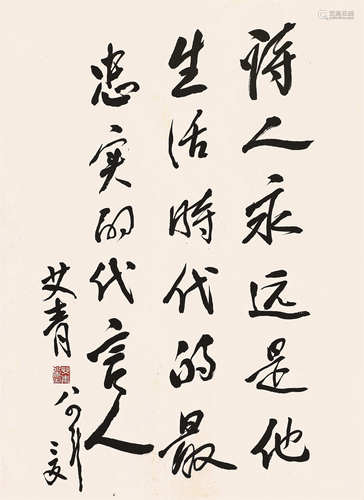 诗人永远是他
生活時代的最
忠实的代言人
艾青
八四年